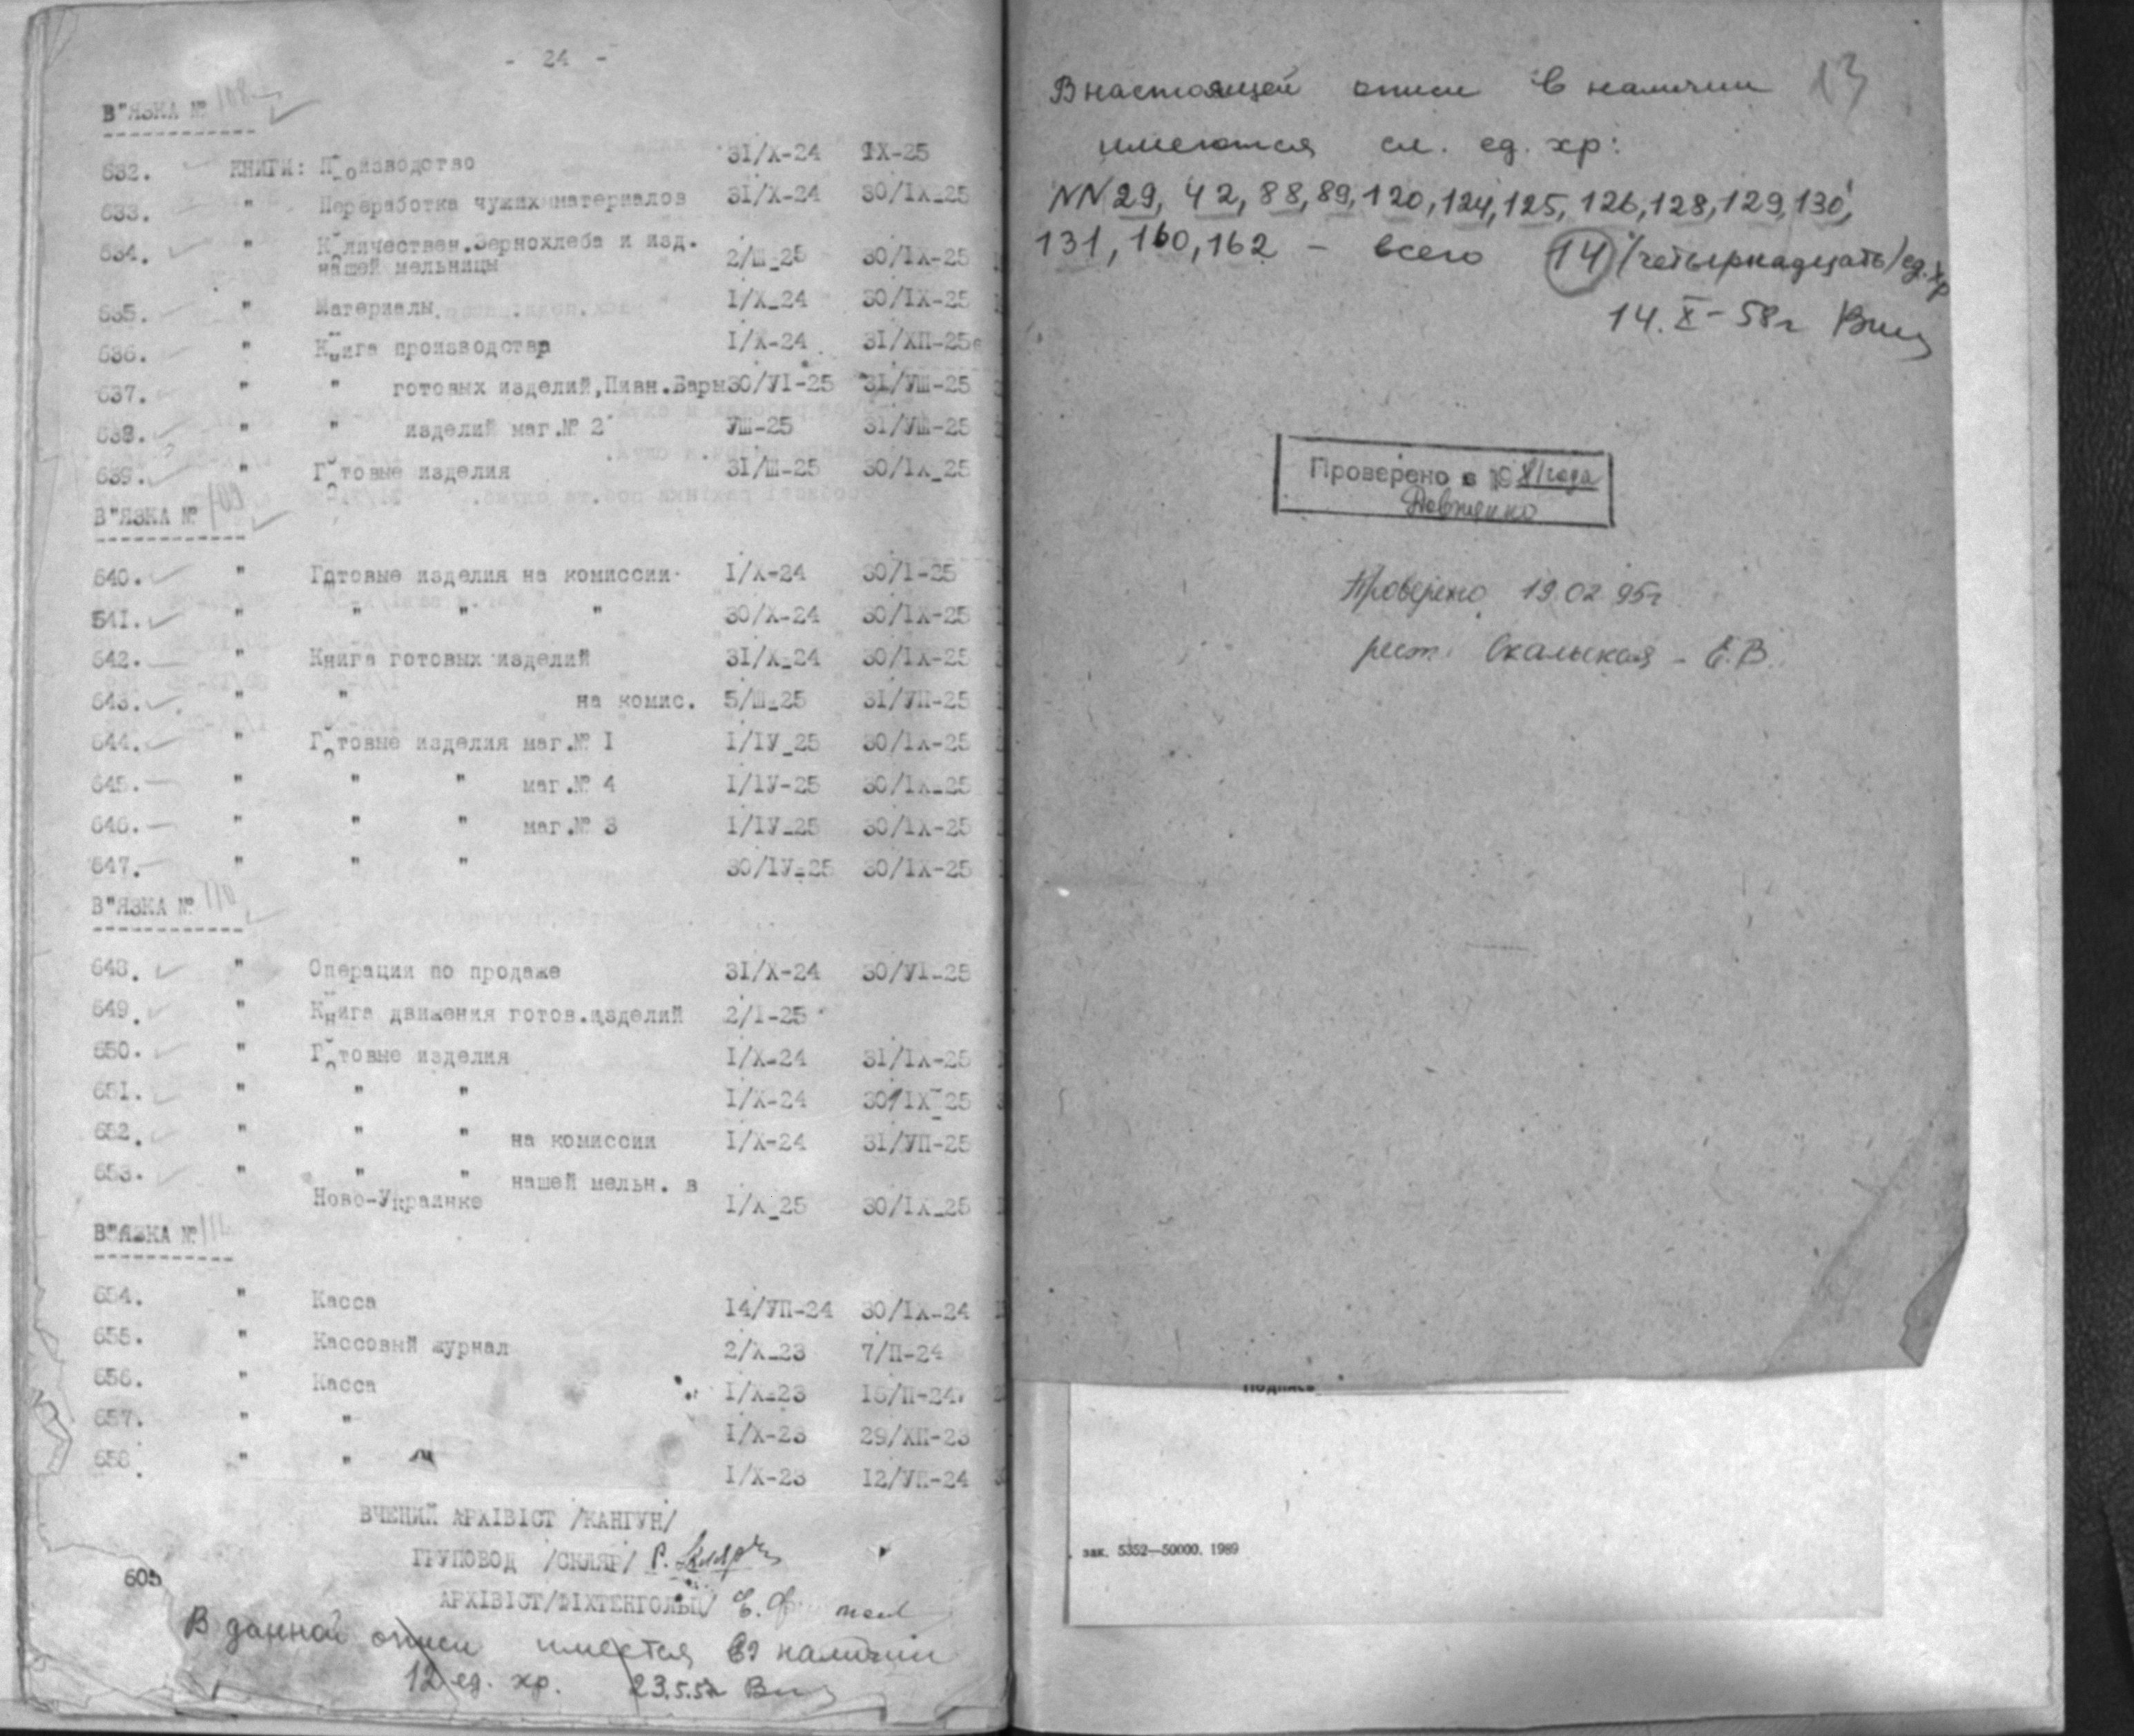 - 24 -
В"ЯЗКА № 108
632. КНИГИ: Производство 31/X-24 IX-25
633. " Переработка чужих материалов 31/X-24 30/IX-25
634. " Количествен.Зернохлеба и изд.
нашей мельницы 2/Ш-25 30/IX-25
635. " Материалы. I/X-24 30/IX-25
636. " Книга производства I/X-24 31/ХП-25
637. " " готовых изделий,Пивн.Бары 30/УI-25 31/УШ-25
638. " " изделий маг.№ 2 УШ-25 31/УШ-25
639. " Готовые изделия 31/Ш-25 30/IX-25
В"ЯЗКА № 109
640. " Готовые изделия на комиссии I/X-24 30/I-25
641. " " " " 30/X-24 30/IX-25
642. " Книга готовых изделий 31/X-24 30/IX-25
643. " " на комис. 5/Ш-25 31/УП-25
644. " Готовые изделия маг.№ I I/IУ-25 30/IX-25
645. " " " маг.№ 4 I/IУ-25 30/IX-25
646. " " " маг.№ 3 I/IУ-25 30/IX-25
647. " " " 30/IУ-25 30/IX-25
В"ЯЗКА № 110
648. " Операции по продаже 31/X-24 30/УI-25
649. " Книга движения готов.изделий 2/I-25
650. " Готовые изделия I/X-24 31/IX-25
651. " " " I/X-24 30/IX-25
652. " " " на комиссии I/X-24 31/УП-25
653. " " " нашей мельн. в
Ново-Украинке I/X-25 30/IX-25
В"ЯЗКА № 111
654. " Касса 14/УП-24 30/IX-24
655. " Кассовый журнал 2/X-23 7/П-24
656. " Касса I/X-23 16/П-24
657. " " I/X-23 29/ХП-23
658. " " I/X-23 12/УП-24
ВЧЕНИЙ АРХІВІСТ /КАНГУН/
ГРУПОВОД /СКЛЯР/ Р. Скляр
АРХІВІСТ/ФІХТЕНГОЛЬЦ/
605
В данной описи имеется в наличии
12 ед. хр. 23.5.52
13
В настоящей описи в наличии
имеются сл. ед. хр:
NN 29, 42, 88, 89, 120, 124, 125, 126, 128, 129, 130,
131, 160, 162 – всего 14 /четырнадцать/ ед. хр
14. X – 58 г
Проверено в 1981 года
Довженко
Проверено 19.02.95г
рест. Скальская – Е.В.
Подпись
зак. 5352—50000. 1989